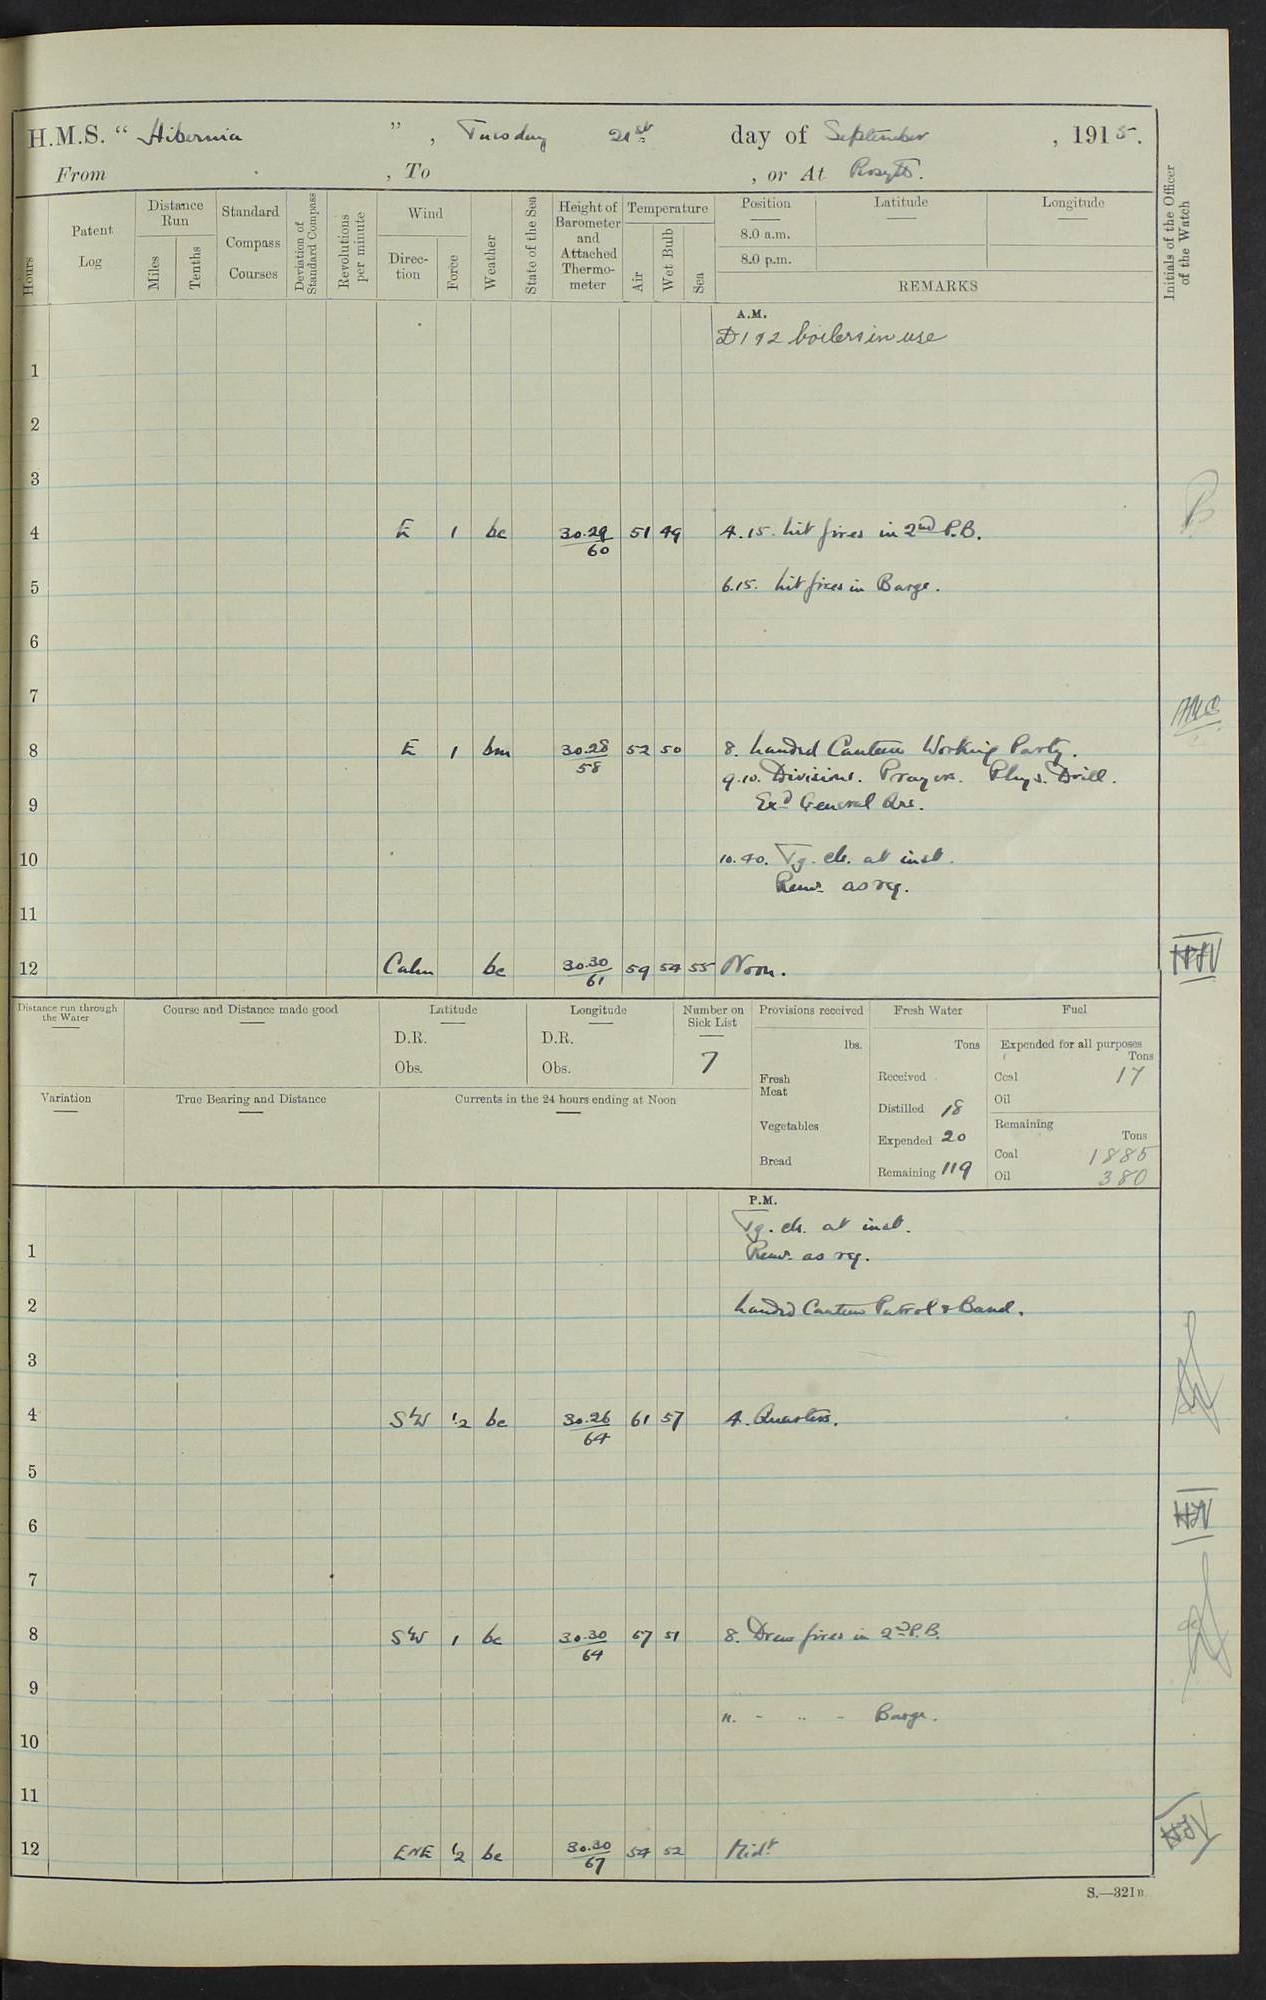 H.M.S. “ Hibernia ” , Tuesday 21st day of September , 1915.
From , To , or At Rosyth.
Hours
Patent Log
Distance Run
Miles
Tenths
Standard Compass Courses
Deviation of Standard Compass
Revolutions per minute
Wind
Direction
Force
Weather
State of the Sea
Height of Barometer and Attached Thermometer
Temperature
Air
Wet Bulb
Sea
Position
8.0 a.m.
8.0 p.m.
Latitude
Longitude
REMARKS
Initials of the Officer of the Watch
A.M.
D 1 & 2 boilers in use
1
2
3
4 E 1 bc 30.29/60 51 49 4.15. Lit fires in 2nd P.B.
5 6.15. Lit fires in Barge.
6
7
8 E 1 bm 30.28/58 52 50 8. Landed Canteen Working Party.
9.10. Divisions. Prayers. Phys. Drill.
9 Exd General Qrs.
10 10.40. Tg. cls. at inst.
Remr as rq.
11
12 Calm bc 30.30/61 59 54 55 Noon.
Distance run through the Water
Course and Distance made good
Latitude
D.R.
Obs.
Longitude
D.R.
Obs.
Number on Sick List
7
Provisions received
lbs.
Fresh Meat
Vegetables
Bread
Fresh Water
Tons
Received
Distilled 18
Expended 20
Remaining 119
Fuel
Expended for all purposes
Tons
Coal 17
Oil
Remaining
Tons
Coal 1885
Oil 380
Variation
True Bearing and Distance
Currents in the 24 hours ending at Noon
P.M.
Tg. cls. at inst.
1 Remr as rq.
2 Landed Canteen Patrol & Band.
3
4 S'W 1/2 bc 30.26/64 61 57 4. Quarters.
5
6
7
8 S'W 1 bc 30.30/64 57 51 8. Drew fires in 2nd P.B.
9
11. - .. - Barge.
10
11
12 ENE 1/2 bc 30.30/67 54 52 Midt
S.—321B.